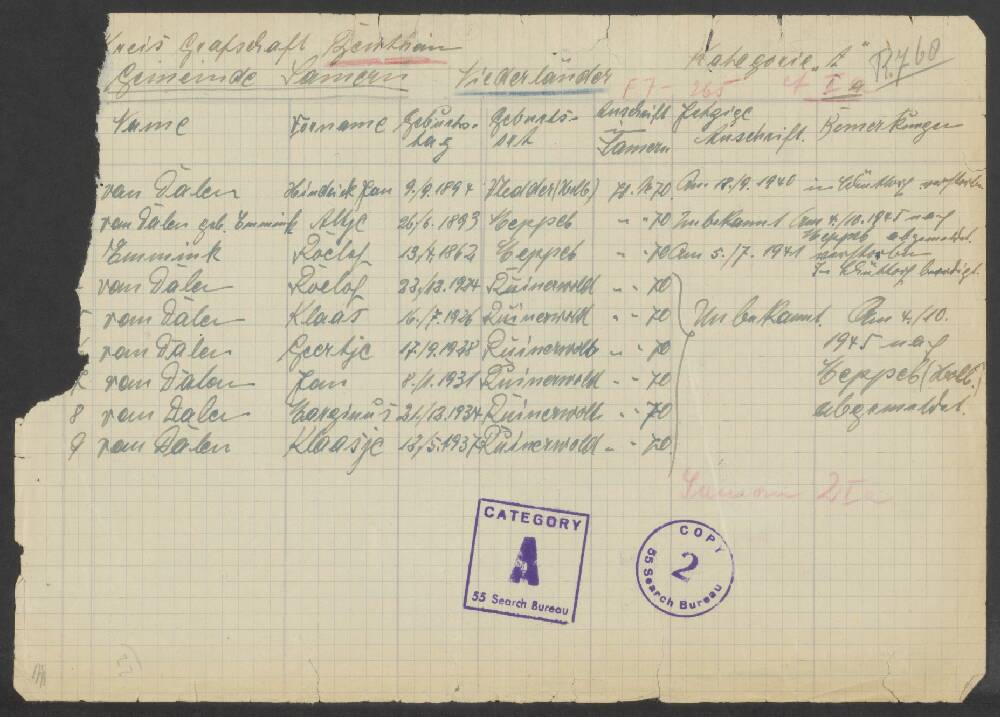 Kreis Grafschaft Bentheim
Kategorie "A" R. 760
Gemeinde Samern Niederländer F7- 265 I a
Name Vorname Geburts-tag Geburts-ort Anschrift Samern Jetzige Anschrift. Bemerkungen
van Dalen Hindrik Jan 9./9. 1894 Nr. 70. Am 18./9. 1940 in Schüttorf verstorben
van Dalen geb. Emmink Altje 26/6. 1893 Meppel " " 70 Unbekannt Am 4./10. 1945 nach Meppel abgemeldet.
Emmink Roelof 13./4. 1862 Meppel " 70 Am 5./7. 1941 verstorben
In Schüttorf beerdigt.
van Dalen Roelof 23./12. 1924 Ruinerwold " " 70
van Dalen Klaas 16./7. 1926 Ruinerwold " " 70 Unbekannt. Am 4./10.
van Dalen Geertje 17./9. 1928 Ruinerwold " " 70 1945 nach
7 van Dalen Jan 8./1. 1931 Ruinerwold " " 70 Meppel (Holl.)
8 van Dalen Marginus 21./12. 1934 Ruinerwold " " 70 abgemeldet.
9 van Dalen Klaasje 12./5. 1937 Ruinerwold " 70
Samern 2 I a
CATEGORY
A
55 Search Bureau
COPY
2
55 Search Bureau